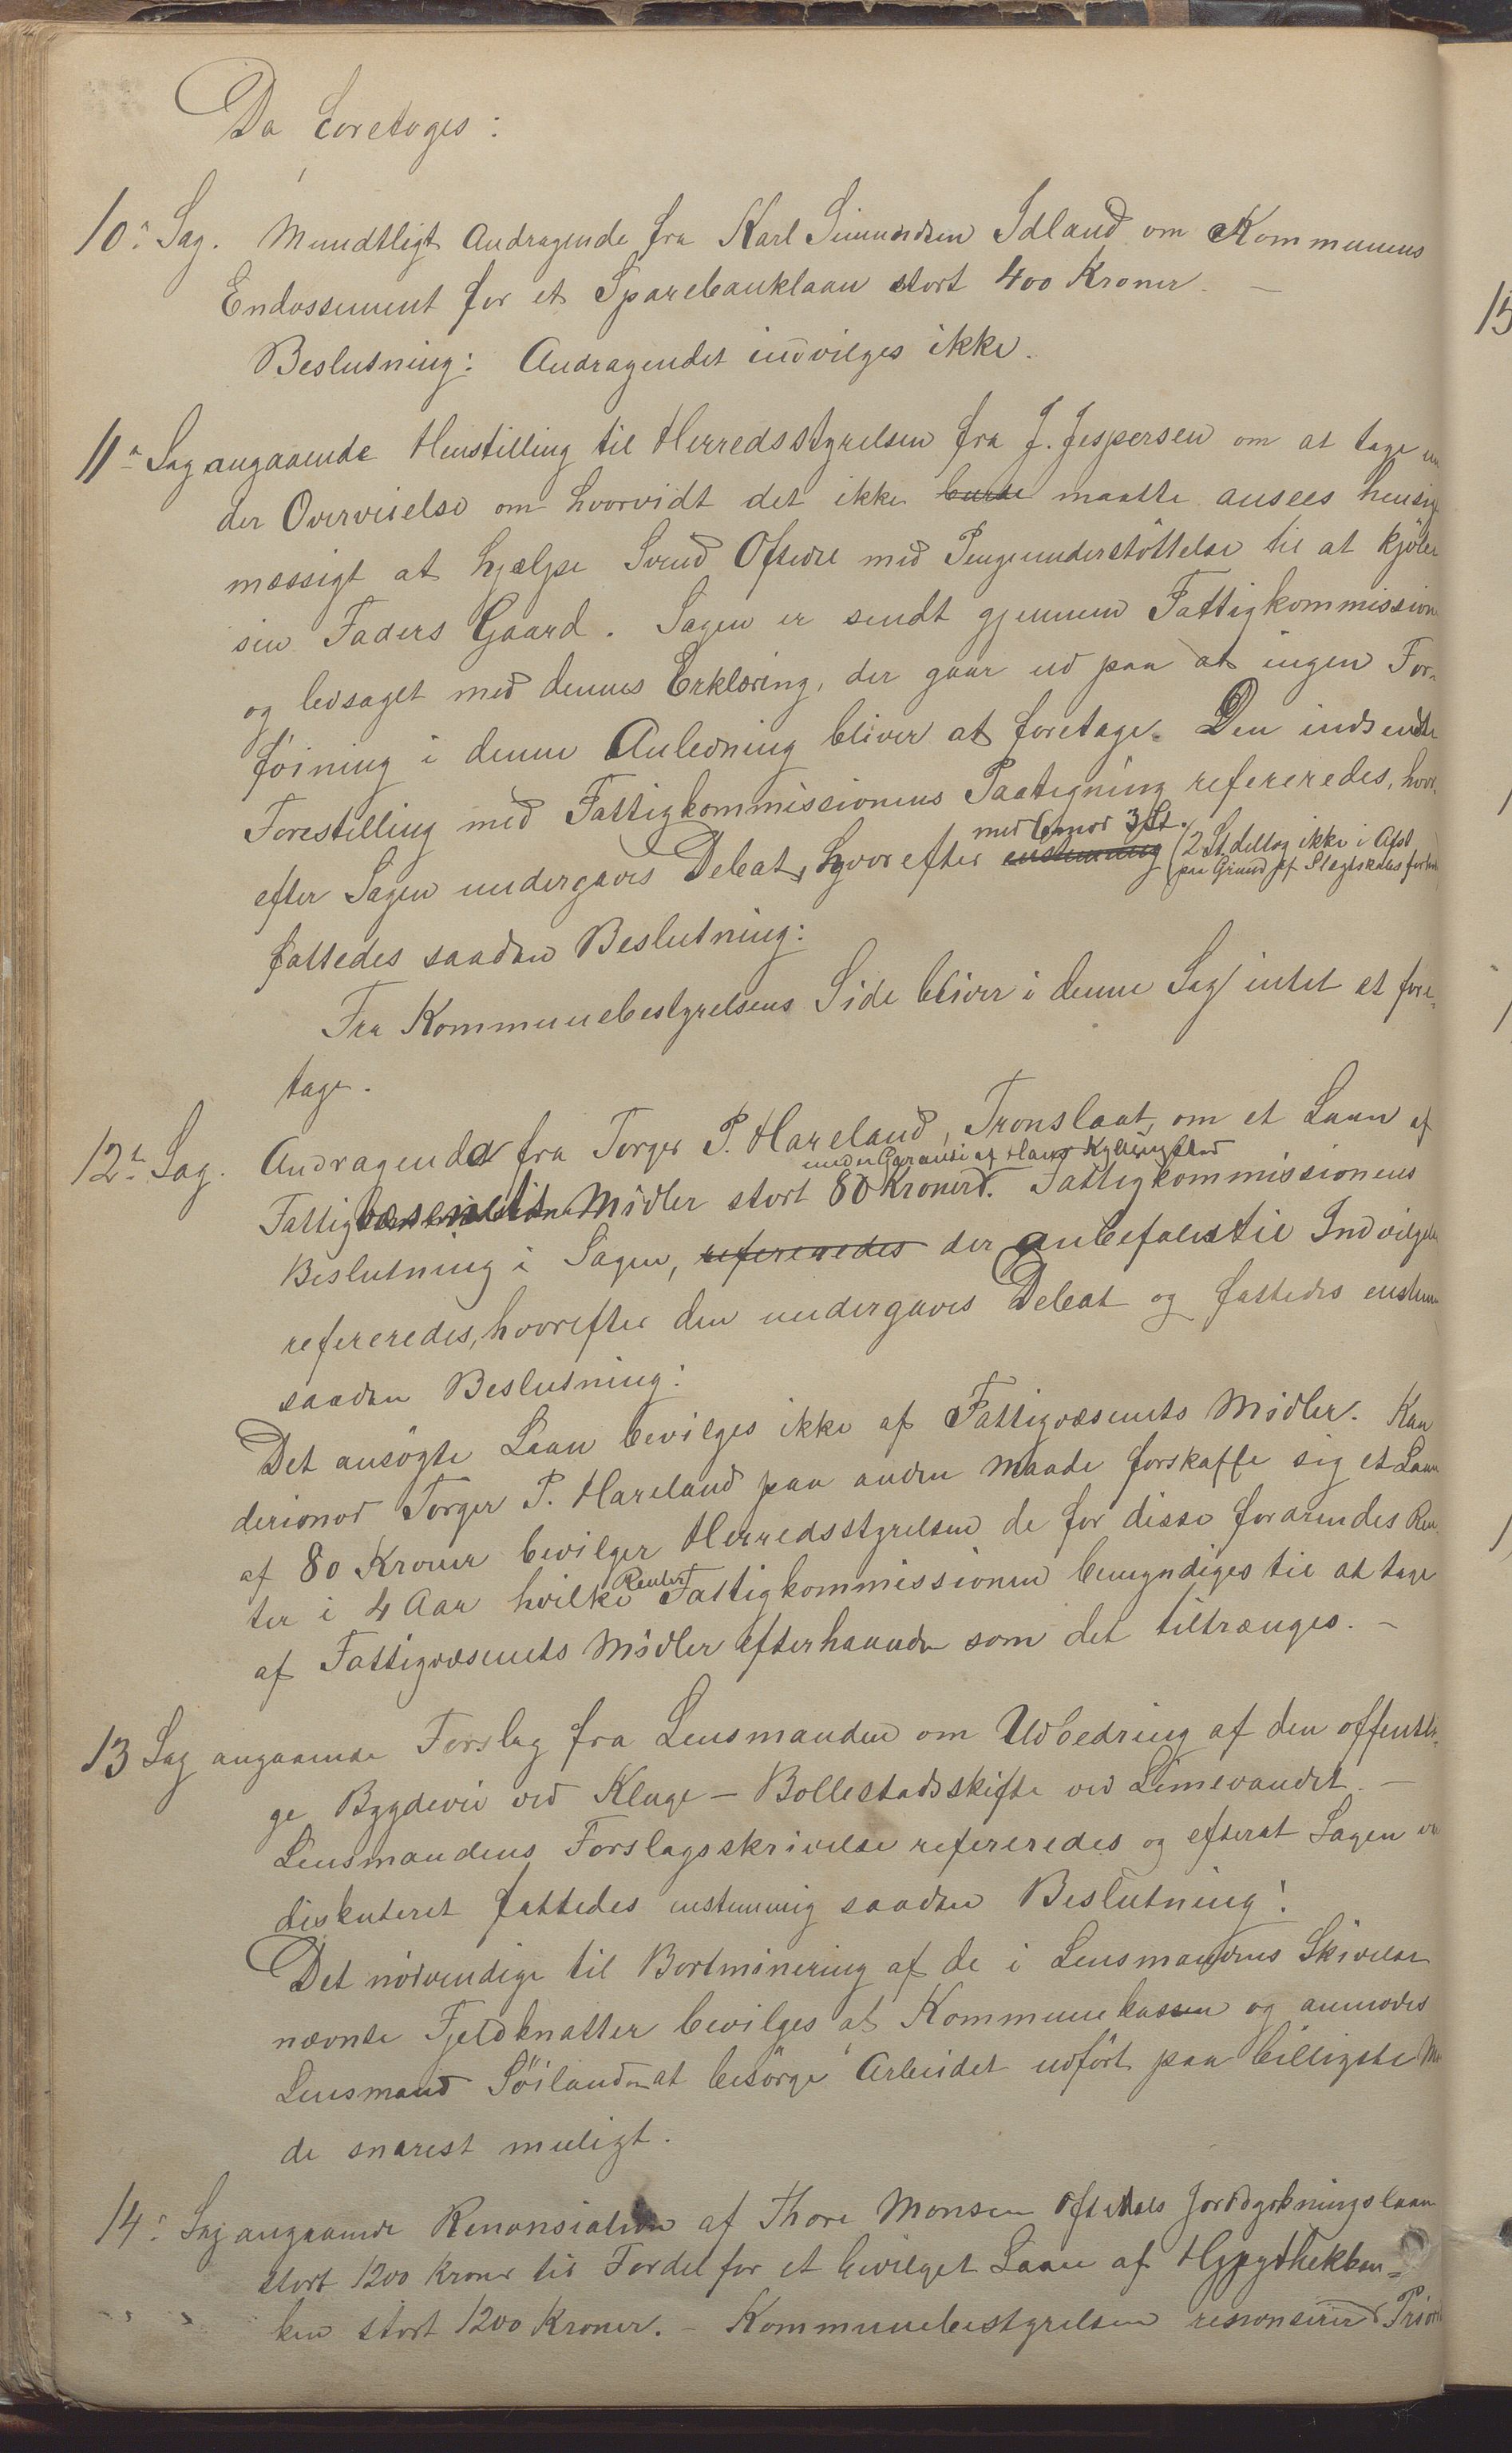 Da foretoges:
10: Sag. Mundtligt Andragende fra Karl Simundsen Idland om Kommunens
Endossement for et Sparebanklaan stort 400 Kroner. —
Beslutning: Andragendet indvilges ikke.
11te Sag angaaende Henstilling til Herredsstyrelsen fra J. Jespersen om at tage un
der Overveielse om hvorvidt det ikke burde maatte ansees hensigt
mæssigt at hjælpe Svend Oftedal med Pengeunderstöttelse til at kjöbe
sin Faders Gaard. Sagen er sendt gjennem Fattigkommission
og ledsaget med dennes Erklæring, der gaar ud paa at ingen For-
föining i denne Anledning bliver at foretage. Den indsendte
Forestilling med Fattigkommissionens Paategning refereredes, hvor
med 6 mod 3 St.
efter Sagen undergaves Debat, hvorefter enstemmig (2 St. deltog ikke i Afst
paa Grund af Slegtskabsforhold)
fattedes saadan Beslutning:
Fra Kommunebestyrelsens Side bliver i denne Sag intet at fore-
tage.
12te Sag. Andragende fra Torger P. Hareland, Tronslaat, om et Laan af
under Garanti af Hans Kyllingstad
Fattigvæsenets Midler stort 80 Kroner. Fattigkommissionens
Beslutning i Sagen, refereredes der anbefales til Indvilgelse
refereredes, hvorefter den undergaves Debat og fattedes enstem
saadan Beslutning:
Det ansögte Laan bevilges ikke af Fattigvæsenets Midler. Kan
derimod Torger P. Hareland paa anden Maade forskaffe sig et Laan
af 80 Kroner bevilger Herredsstyrelsen de for disse fordrendes Ren
Renter
ter i 4 Aar hvilke Fattigkommissionen bemyndiges til at tage
af Fattigvæsenets Midler efterhaanden som det tiltrænges. —
13 Sag angaaende Forslag fra Lensmanden om Udbedring af den offentli-
ge Bygdevei ved Kluge – Bollestadsskifte ved Limevandet. —
Lensmandens Forslagsskrivelse refereredes og efterat Sagen er
diskuteret fattedes enstemmig saadan Beslutning:
Det nödvendige til Bortminering af de i Lensmandens Skivelse
nævnte Fjeldknatter bevilges af Kommunekassen og anmodes
Lensmand Söiland at besörge Arbeidet udfört paa billigste Maa
de snarest muligt.
14: Sag angaaende Renonsiation af Thore Monsen Oftedals Jorddyrkningslaan
stort 1200 Kroner til Fordel for et bevilget Laan af Hypothekban-
ken stort 1200 Kroner. – Kommunebestyrelsen renonserer Priori
15